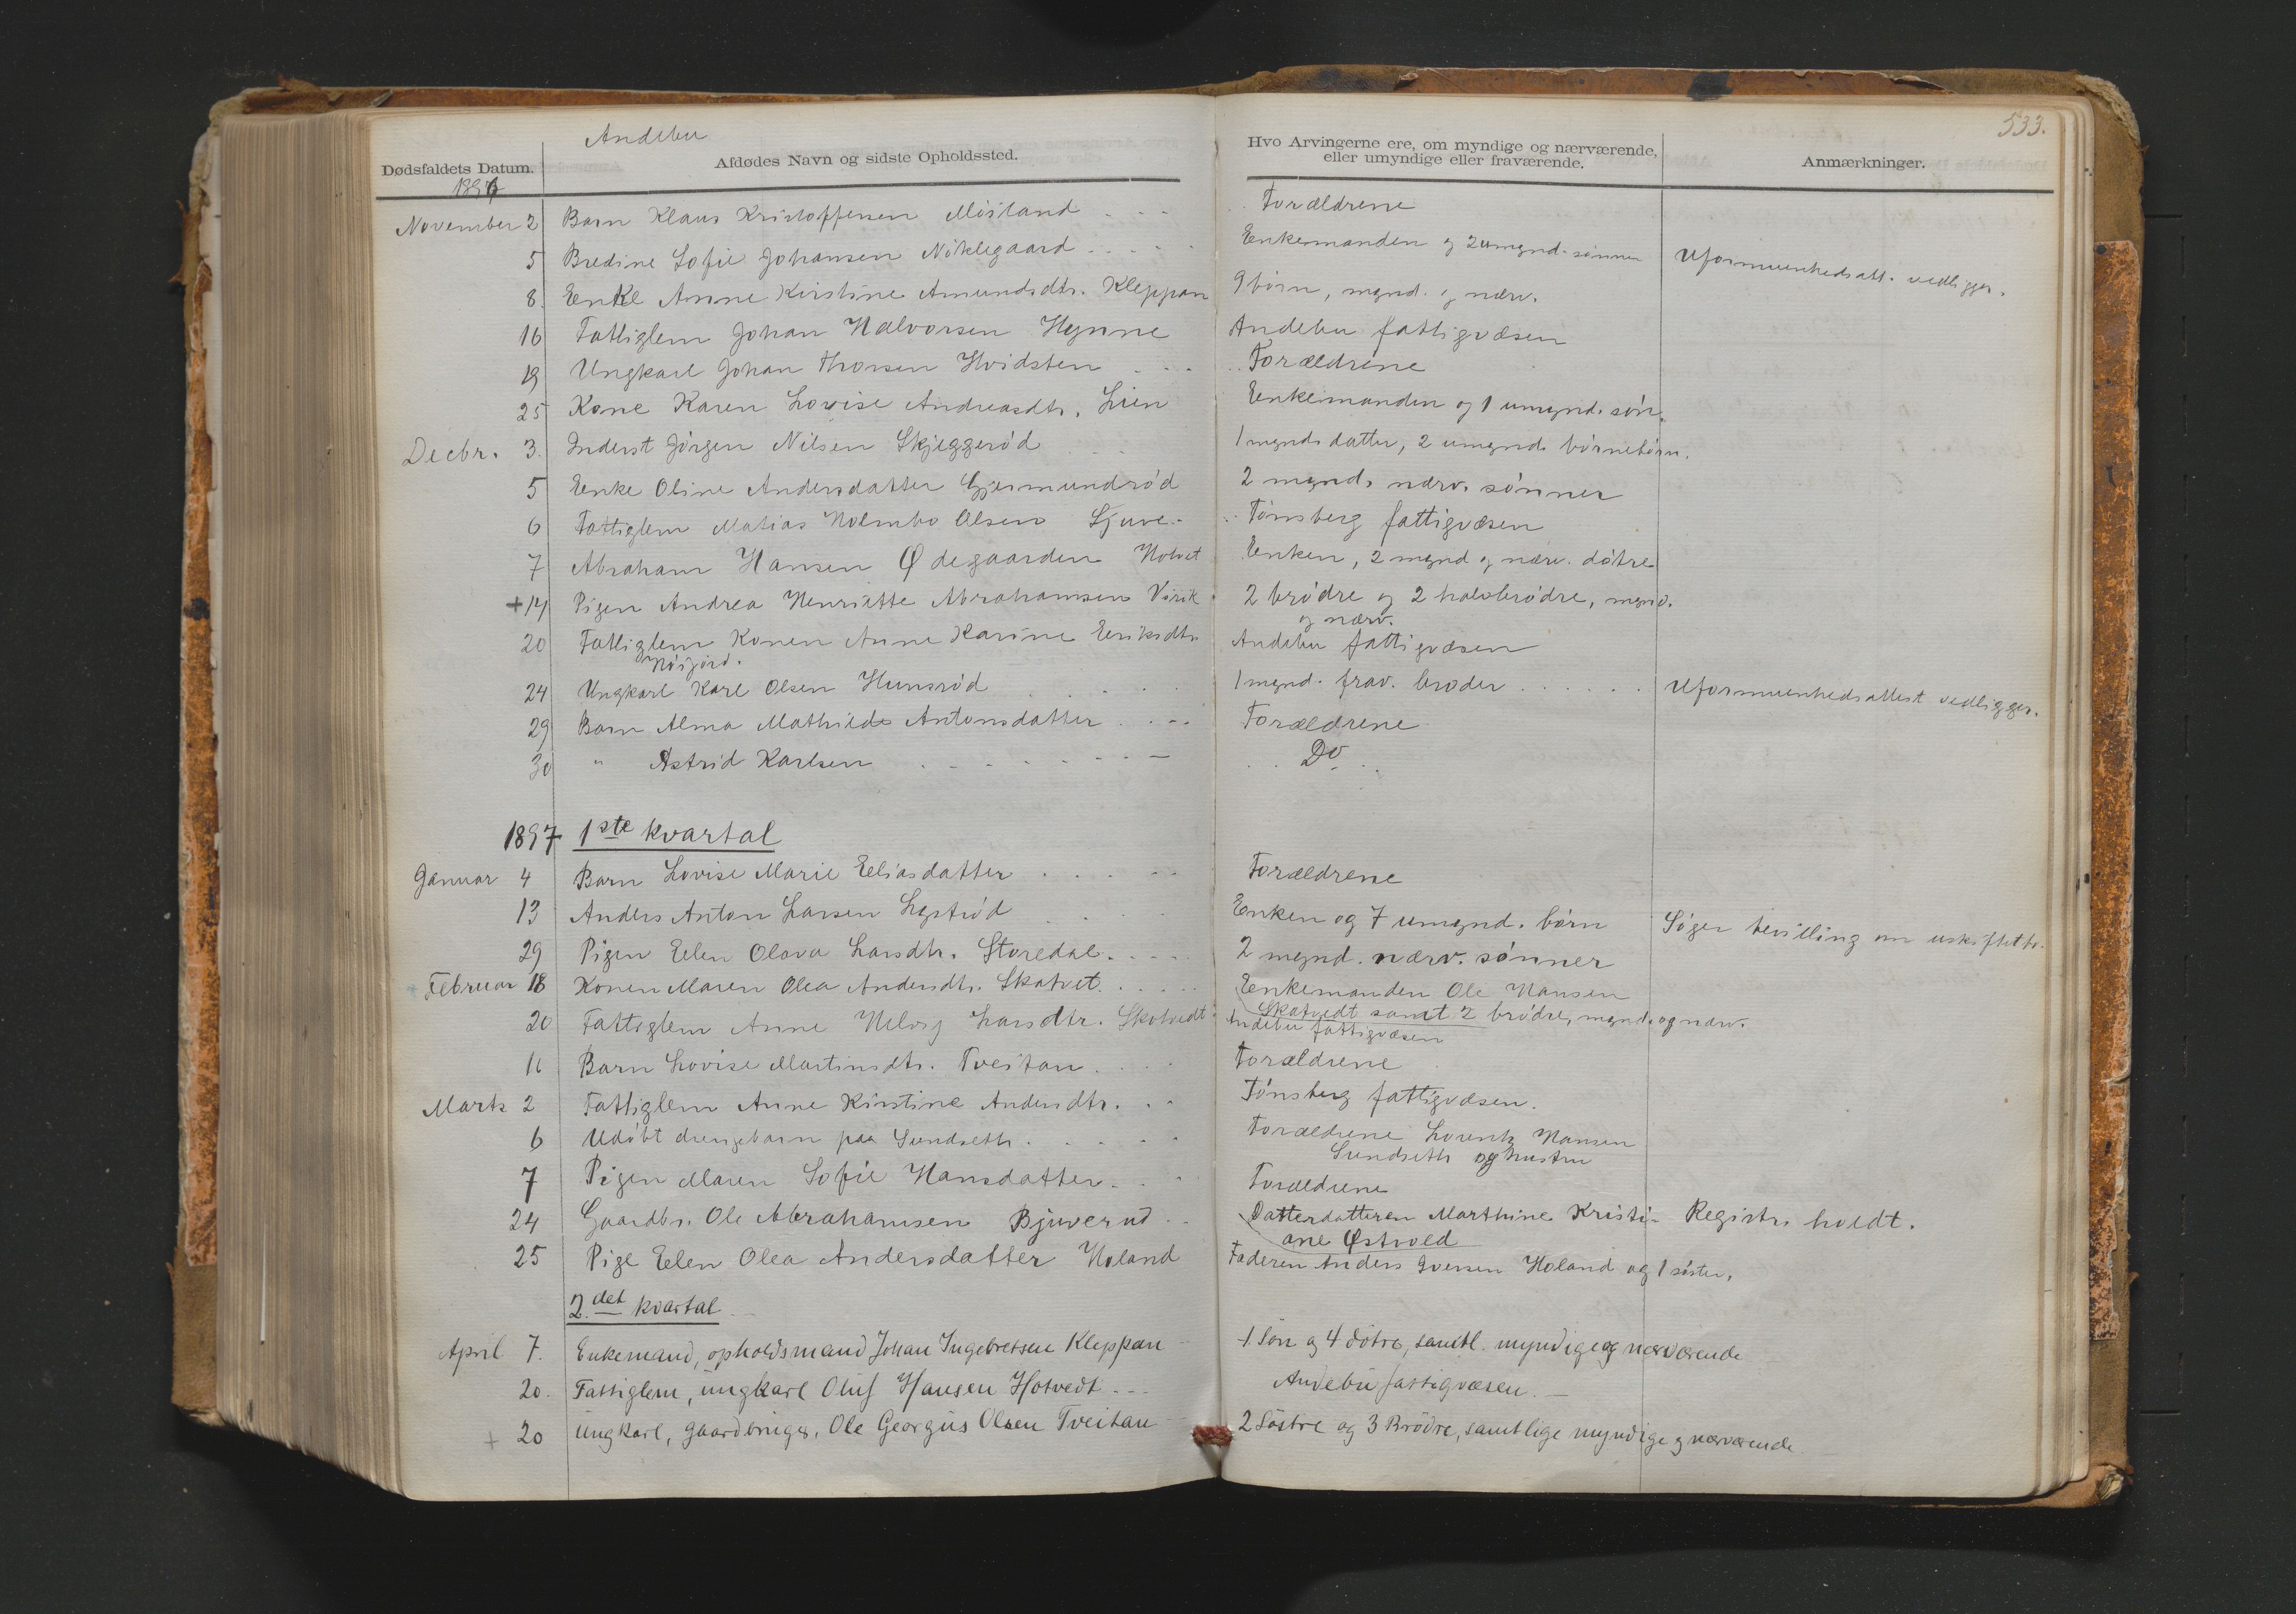 533.
Andebu
Dødsfaldets Datum. Afdødes Navn og sidste Opholdssted. Hvo Arvingerne ere, om myndige og nærværende, eller umyndige eller fraværende. Anmærkninger.
1896
November 2 Barn Klaus Kristoffersen Møiland Forældrene
5 Bredine Sofie Johansen Nøklegaard Enkemanden og 2 umynd. sønner Uformuenhedsatt. vedligger.
8. Enke Anne Kirstine Amundsdtr. Kleppan 9 børn, mynd. og nærv.
16 Fattiglem Johan Halvorsen Hynne Andebu fattigvæsen
19 Ungkarl Johan Thorsen Hvidsten Forældrene
25 Kone Karen Lovise Andreasdtr. Lien Enkemanden og 1 umynd. søn.
Decbr. 3. Inderst Jörgen Nilsen Skjeggerød 1 mynd. datter, 2 umynd. børnebørn.
5 Enke Oline Andersdatter Gjermundrød 2 mynd. nærv. sønner
6 Fattiglem Matias Holmbo Olsen Sjuve Tønsberg fattigvæsen
7 Abraham Hansen Ødegaarden Hotvet Enken, 2 mynd og nærv. døtre
+ 14 Pigen Andrea Henriette Abrahamsen Virik 2 brødre og 2 halvbrødre, mynd.
og nærv.
20 Fattiglem Konen Anne Karine Eriksdtr. Andebu fattigvæsen
Nøigjord.
24 Ungkarl Karl Olsen Hunsrød 1 mynd. frav. broder Uformuenhedsattest vedligger.
29 Barn Alma Mathilde Antonsdatter Forældrene
30 " Astrid Karlsen Do
1897 1ste kvartal
Januar 4 Barn Lovise Marie Eliasdatter Forældrene
13 Anders Anton Larsen Lystrød Enken og 7 umynd. børn Søger bevilling om uskiftet bo.
29 Pigen Elen Olava Larsdtr. Storedal 2 mynd. nærv. sønner
Februar 18 Konen Maren Olea Andersdtr. Skatvet Enkemanden Ole Hansen
Skatvedt samt 2 brødre, mynd. og nærv.
20 Fattiglem Anne Helvig Larsdtr. Skotvedt Andebu fattigvæsen
11 Barn Lovise Martinsdtr. Tveitan Forældrene
Marts 2 Fattiglem Anne Kirstine Andersdtr. Tønsberg fattigvæsen.
6 Udøbt drengebarn paa Sundseth Forældrene Lorentz Hansen
Sundseth og hustru
7 Pigen Maren Sofie Hansdatter Forældrene
24 Gaardbr. Ole Abrahamsen Bjuverud Datterdatteren Marthine Kristi- Registr. holdt.
ane Østvold
25 Pige Elen Olea Andersdatter Holand Faderen Anders Iversen Holand og 1 søster.
2det kvartal
April 7. Enkemand, opholdsmand Johan Ingebretsen Kleppan 1 Søn og 4 døtre, samtl. myndige og nærværende
20. Fattiglem, ungkarl Oluf Hansen Hotvedt Andebu fattigvæsen.
+ 20 Ungkarl, gaardbruger, Ole Georgius Olsen Tveitan 2 Søstre og 3 Brødre, samtlige myndige og nærværende.